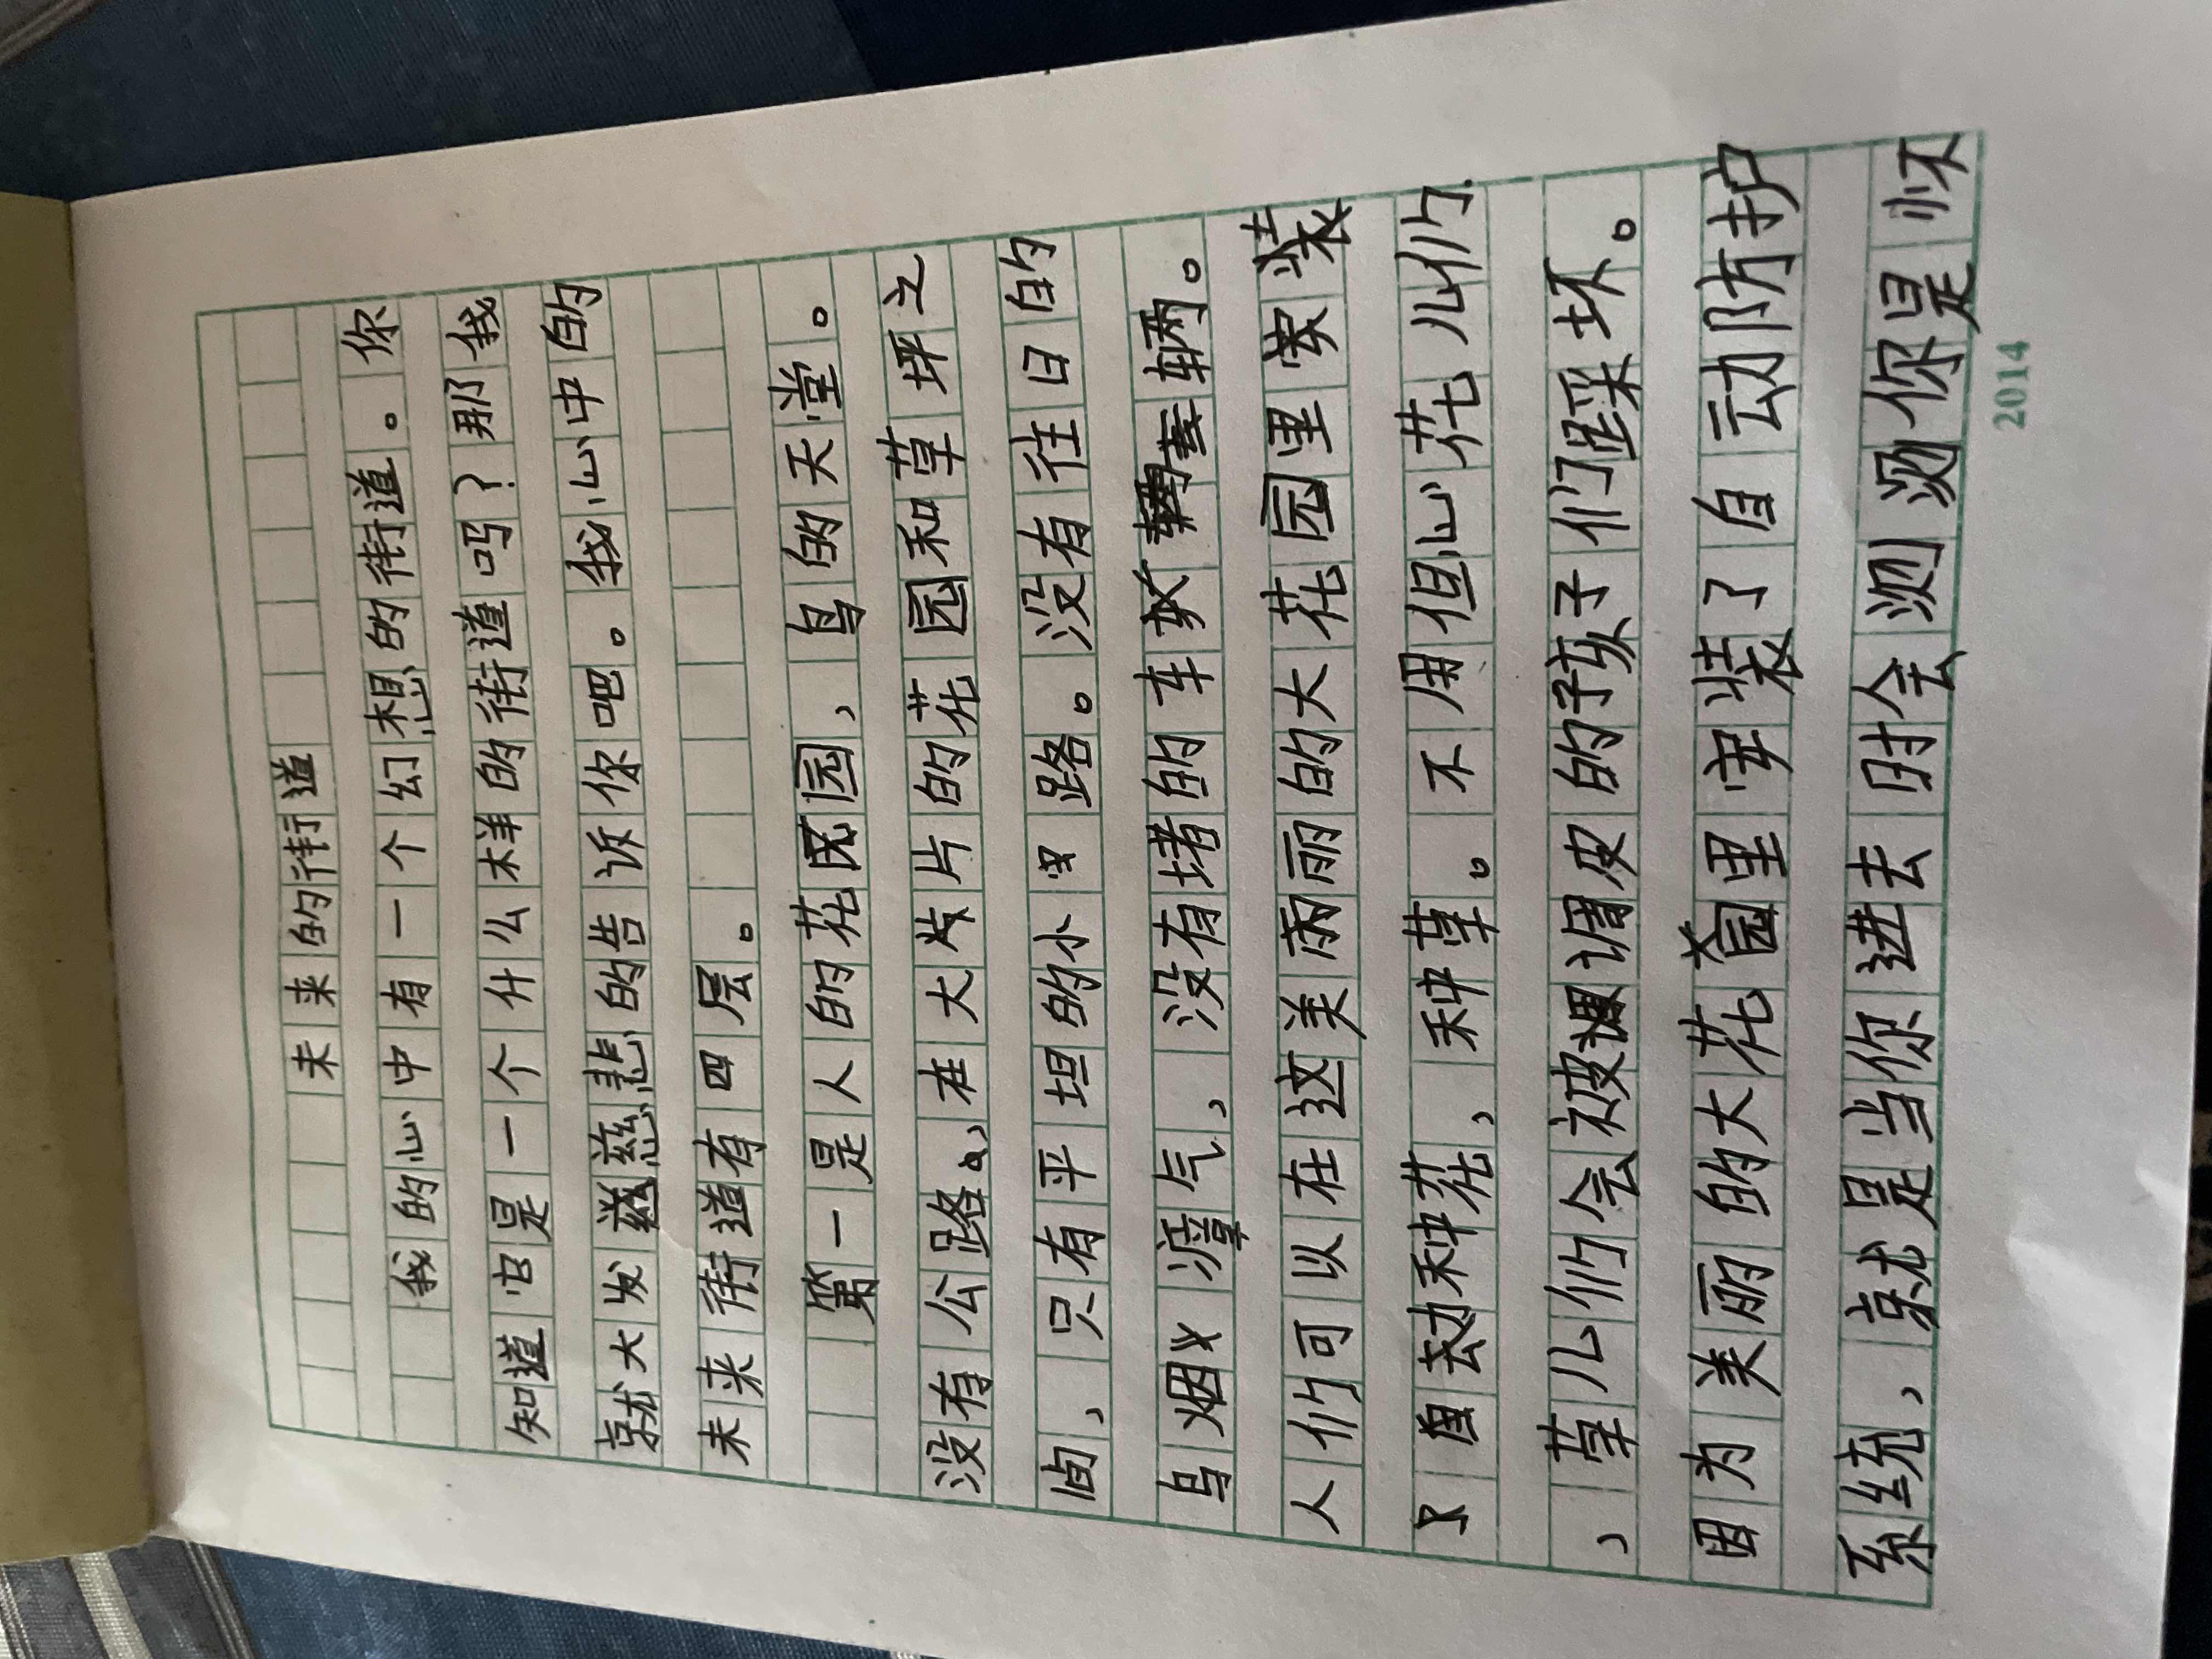 未来的街道
我的心中有一个幻想的街道。你
知道它是一个什么样的街道吗？那我
就大发慈悲的告诉你吧。我心中的
未来街道有四层。
第一是人的花园，鸟的天堂。
没有公路，在大片的花园和草坪之
间，只有平坦的小路。没有往日的
乌烟瘴气，没有堵的车辆。
人们可以在这美丽的大花园里安装
自动种花，种草。不用但心花儿们
，草儿们会被调皮的孩子们踩坏。
因为美丽的大花园里安装了自动防护
系统，就是当你进去时会测你是怀
2014